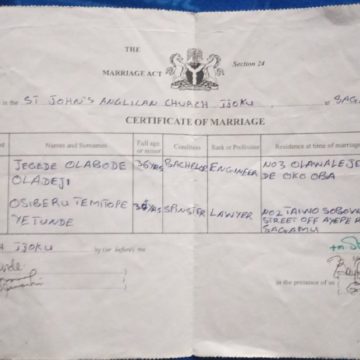 THE
MARRIAGE ACT
Section 24
in the ST JOHN'S ANGLICAN CHURCH IJOKU
CERTIFICATE OF MARRIAGE
ied Names and Surnames Full age or minor Condition Rank or Profession Residence at time of marriage
JEGEDE OLABODE OLADEJI 36YRS BACHELOR ENGINEER NO3 OLAWALE JE DE OKO OBA
OSIBERU TEMITOPE YETUNDE YRS SPINSTER LAWYER NO2 TAIWO SOBOW STREET OFF AYEPE R SAGAMU
IJOKU by (or before) me
in the presence of us